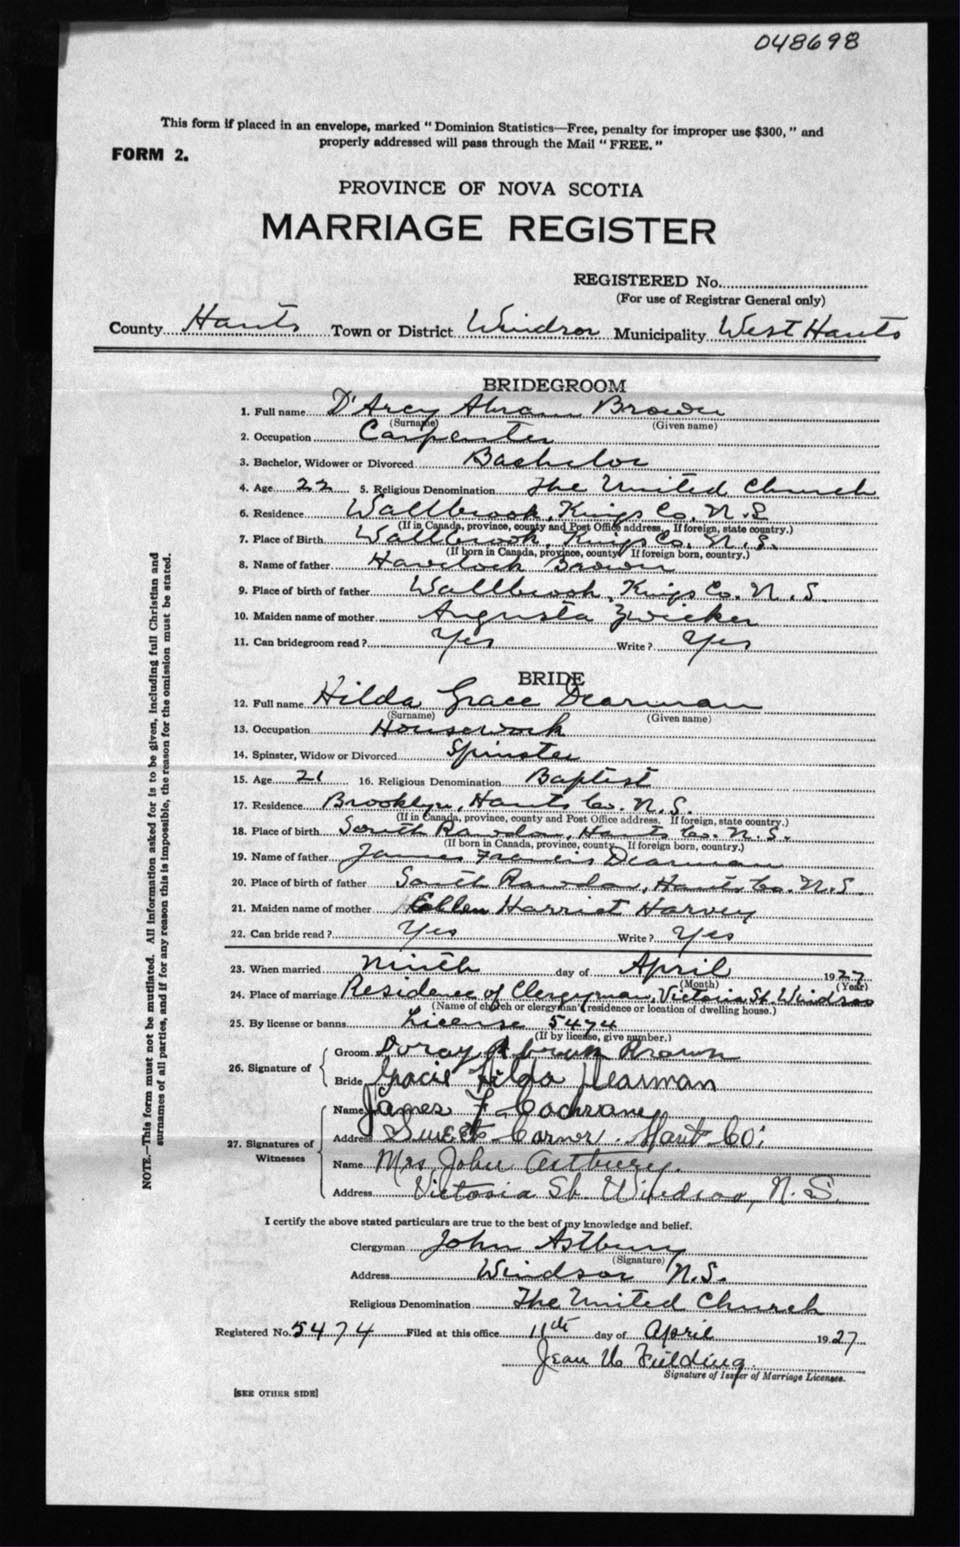 048698
This form if placed in an envelope, marked "Dominion Statistics—Free, penalty for improper use $300," and
properly addressed will pass through the Mail "FREE."
FORM 2.
PROVINCE OF NOVA SCOTIA
MARRIAGE REGISTER
REGISTERED No.
(For use of Registrar General only)
County Hants Town or District Windsor Municipality West Hants
BRIDEGROOM
1. Full name D'Arcy Abram Brown
(Surname) (Given name)
2. Occupation Carpenter
3. Bachelor, Widower or Divorced Bachelor
4. Age 22 5. Religious Denomination The United Church
6. Residence Wallbrook, Kings Co. N.S
(If in Canada, province, county and Post Office address. If foreign, state country.)
7. Place of Birth Wallbrook, Kings Co. N.S.
(If born in Canada, province, county. If foreign born, country.)
8. Name of father Havelock Brown
9. Place of birth of father Wallbrook, Kings Co. N.S.
10. Maiden name of mother Augusta Zwicker
11. Can bridegroom read? Yes Write? Yes
BRIDE
12. Full name Hilda Grace Dearman
(Surname) (Given name)
13. Occupation Housework
14. Spinster, Widow or Divorced Spinster
15. Age 21 16. Religious Denomination Baptist
17. Residence Brooklyn, Hants Co. N.S.
(If in Canada, province, county and Post Office address. If foreign, state country.)
18. Place of birth South Rawdon, Hants Co. N.S.
(If born in Canada, province, county. If foreign born, country.)
19. Name of father James Francis Dearman
20. Place of birth of father South Rawdon, Hants Co. N.S.
21. Maiden name of mother Ellen Harriet Harvey
22. Can bride read? Yes Write? Yes
23. When married Ninth day of April 1927
(Month) (Year)
24. Place of marriage Residence of Clergyman, Victoria St. Windsor
(Name of church or clergyman's residence or location of dwelling house.)
25. By license or banns License 5474
(If by license, give number.)
26. Signature of
Groom Abrum Brown
Bride Gracie Hilda Dearman
27. Signatures of Witnesses
Name James F Cochrane
Address Sweets Corner. Hant Co.
Name Mrs John Astbury.
Address Victoria St. Windsor, N.S.
I certify the above stated particulars are true to the best of my knowledge and belief.
Clergyman John Astbury
(Signature)
Address Windsor N.S.
Religious Denomination The United Church
Registered No. 5474 Filed at this office 11th day of April 1927
Jean Fielding
Signature of Issuer of Marriage Licenses.
[SEE OTHER SIDE]
NOTE.—This form must not be mutilated. All information asked for is to be given, including full Christian and
surnames of all parties, and if for any reason this is impossible, the reason for the omission must be stated.